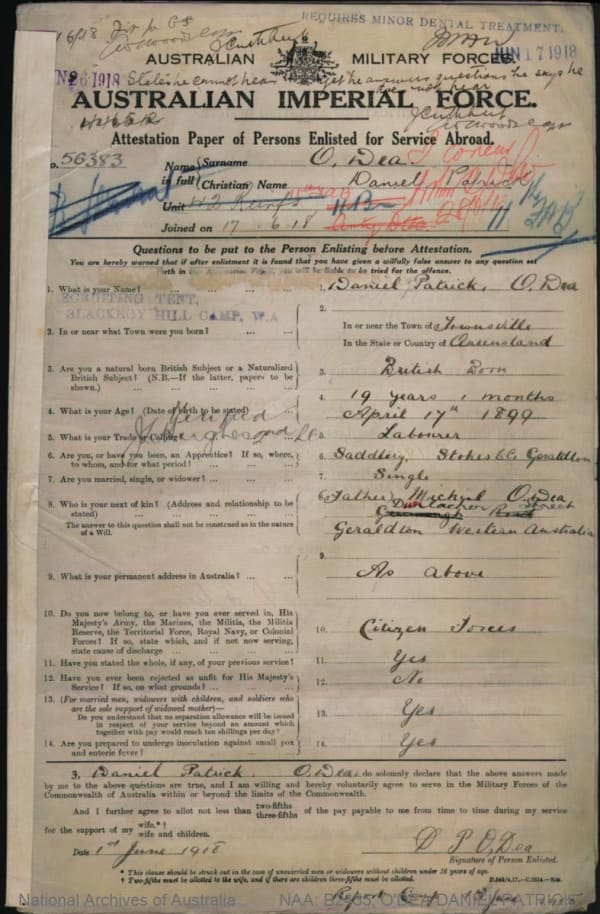 REQUIRES MINOR DENTAL TREATMENT.
JUN 17 1918
AUSTRALIAN MILITARY FORCES.
26 1918 States he cannot hear yet he answers questions he says he
does not hear
AUSTRALIAN IMPERIAL FORCE.
Attestation Paper of Persons Enlisted for Service Abroad.
No. 56383
Name in full { Surname O'Dea
Christian Name Daniel Patrick
Unit
Joined on 17. 6. 18
Questions to be put to the Person Enlisting before Attestation.
You are hereby warned that if after enlistment it is found that you have given a wilfully false answer to any question set
forth in the you will be liable to be tried for the offence.
1. What is your Name? ... ... 1. Daniel Patrick O'Dea
RECRUITING TENT,
BLACKBOY HILL CAMP, W.A
2. In or near what Town were you born? ... 2. In or near the Town of Townsville
In the State or Country of Queensland
3. Are you a natural born British Subject or a Naturalized
British Subject? (N.B.—If the latter, papers to be
shown.) ... ... 3. British Born
4. What is your Age? (Date of birth to be stated) 4. 19 years 1 months
April 17th 1899
Verified
5. What is your Trade or Calling? 5. Labourer
6. Are you, or have you been, an Apprentice? If so, where,
to whom, and for what period? ... ... 6. Saddlery Stokes & Co. Geraldton
7. Are you married, single, or widower? ... ... 7. Single
8. Who is your next of kin? (Address and relationship to be
stated) ... ... 8. Father Michael O'Dea
Durlacher Street
Geraldton Western Australia
The answer to this question shall not be construed as in the nature
of a Will.
9. What is your permanent address in Australia? ... ... 9. As above
10. Do you now belong to, or have you ever served in, His
Majesty's Army, the Marines, the Militia, the Militia
Reserve, the Territorial Force, Royal Navy, or Colonial
Forces? If so, state which, and if not now serving,
state cause of discharge ... ... 10. Citizen Forces
11. Have you stated the whole, if any, of your previous service? 11. Yes
12. Have you ever been rejected as unfit for His Majesty's
Service? If so, on what grounds? ... ... 12. No
13. (For married men, widowers with children, and soldiers who
are the sole support of widowed mother)—
Do you understand that no separation allowance will be issued
in respect of your service beyond an amount which
together with pay would reach ten shillings per day? 13. Yes
14. Are you prepared to undergo inoculation against small pox
and enteric fever? ... ... 14. Yes
3, Daniel Patrick O'Dea do solemnly declare that the above answers made
by me to the above questions are true, and I am willing and hereby voluntarily agree to serve in the Military Forces of the
Commonwealth of Australia within or beyond the limits of the Commonwealth.
And I further agree to allot not less than two-fifths three-fifths of the pay payable to me from time to time during my service
for the support of my wife.*† wife and children.
Date 1st June 1918 D P O'Dea
Signature of Person Enlisted.
* This clause should be struck out in the case of unmarried men or widowers without children under 16 years of age.
† Two-fifths must be allotted to the wife, and if there are children three-fifths must be allotted.
National Archives of Australia NAA: B2455, O'DEA DANIEL PATRICK